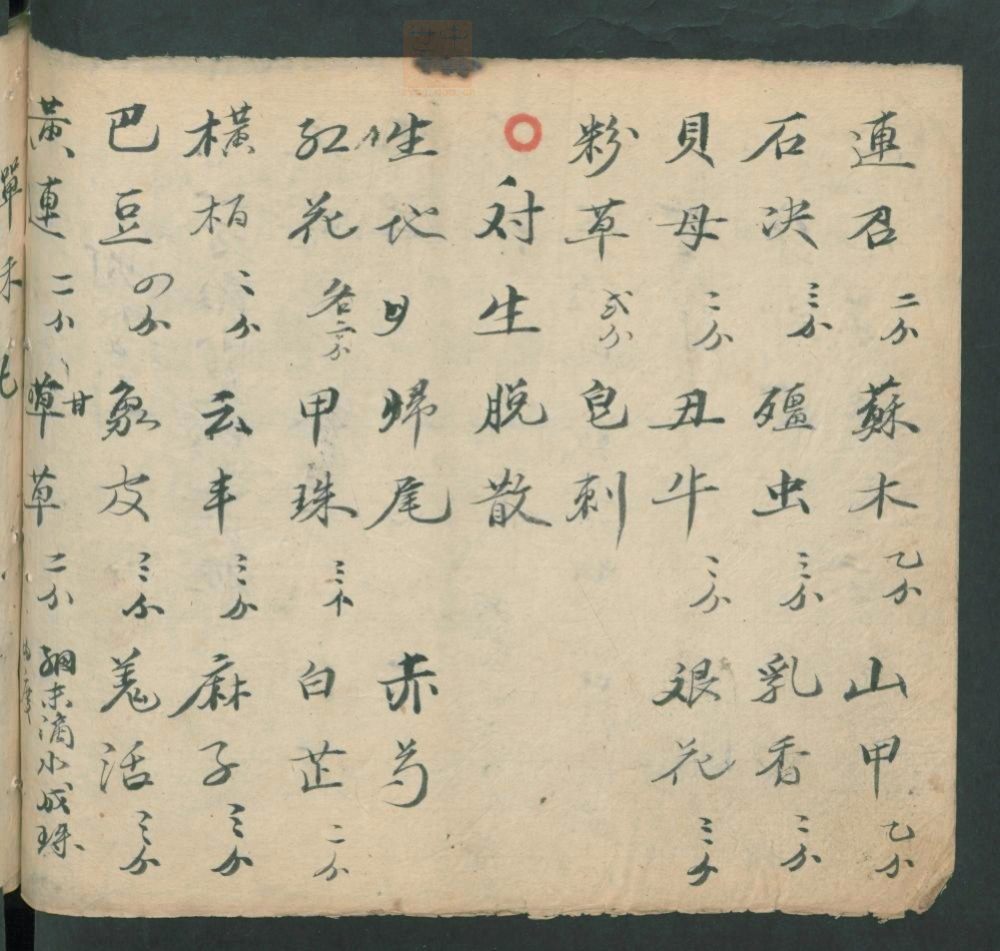 連召二分蘇木乙分山甲乙分
石决三分殭虫三分乳香二分
貝母二分丑牛三分艮花三分
粉草弍分皂刺
对生脱散
生地 歸尾 赤芍
紅花各二分甲珠三分白芷二分
橫柏二分云丰三分麻子三分
巴豆四分象皮三分羌活三分
黃連二分草甘草二分細末滴水成珠
單 未 七